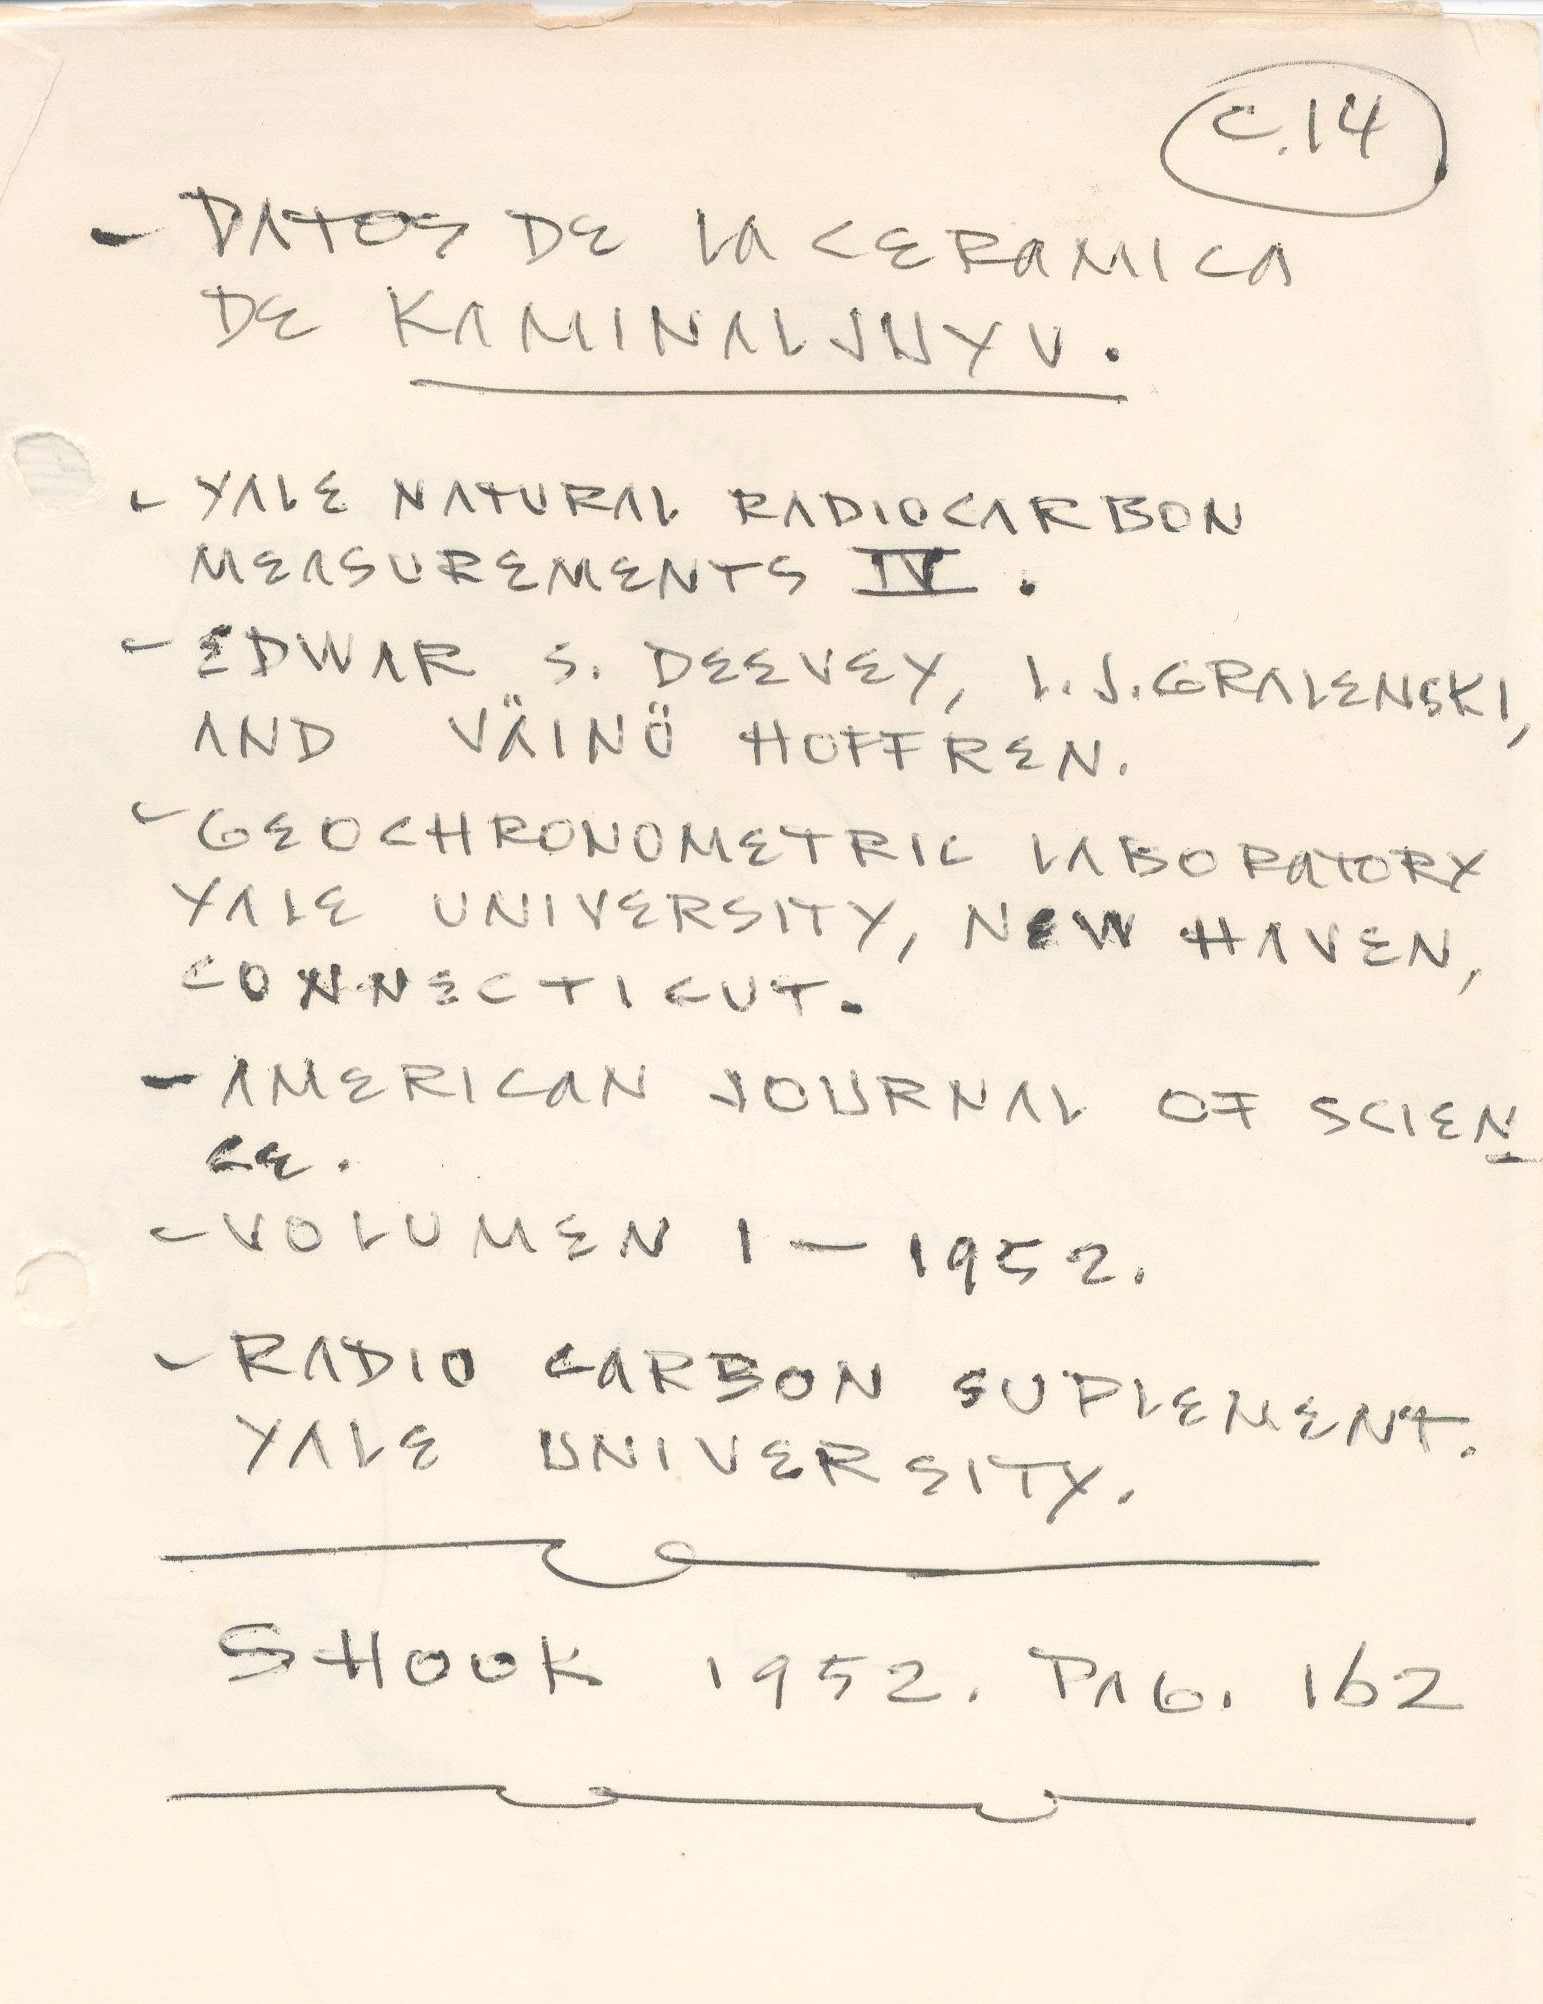 C.14
- DATOS DE LA CERAMICA
DE KAMINALJUYU.
- YALE NATURAL RADIOCARBON
MEASUREMENTS IV.
- EDWAR S. DEEVEY, L.J. GRALENSKI,
AND VÄINÖ HOFFREN.
- GEOCHRONOMETRIC LABORATORY
YALE UNIVERSITY, NEW HAVEN,
CONNECTICUT.
- AMERICAN JOURNAL OF SCIEN
CE.
- VOLUMEN 1 - 1952.
- RADIO CARBON SUPLEMENT.
YALE UNIVERSITY.
SHOOK 1952. PAG. 162